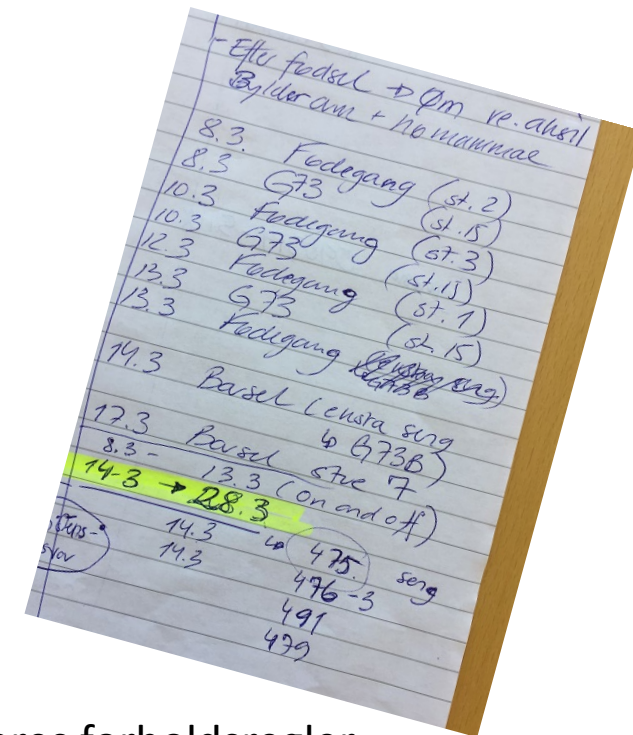 - Efter fødsel → Øm ve. aksil
Bylder arm + ho mammae
8.3. Fødegang (st. 2)
8.3 G73 (st. 15)
10.3 Fødegang (st. 3)
10.3 G73 (st. 15)
12.3 Fødegang (st. 1)
13.3 G73 (st. 15)
13.3 Fødegang
14.3 Barsel (ensta seng
↳ G73B)
17.3 Barsel stue 7
8.3 - 13.3 (on and off)
14-3 → 28.3
14.3 ↳ 475. seng
14.3 476-3
491
479
svar